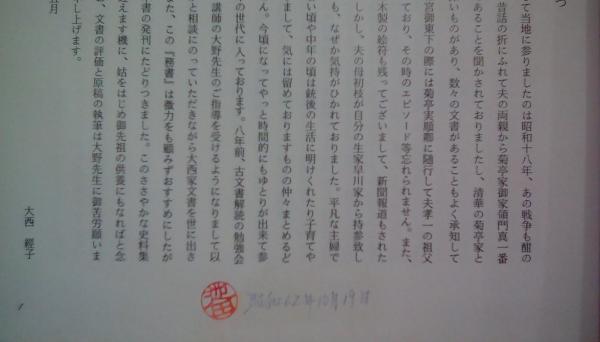 つ
て当地に参りましたのは昭和十八年、あの戦争も酣の
昔話の折にふれて夫の両親から菊亭家御家領門真一番
あることを聞かされておりましたし、清華の菊亭家と
いものがあり、数々の文書があることもよく承知して
宮御東下の際には菊亭実順卿に随行して夫孝一の祖父
ており、その時のエピソード等忘れられません。また、
木製の絵符も残ってございまして、新聞報道もされた
しかし、夫の母初枝が自分の生家早川家から持参致し
も、なぜか気持がひかれておりました。平凡な主婦で
い頃や中年の頃は銃後の生活に明けくれたり子育てや
まして、気には留めておりますものの仲々まとめるど
ん。今頃になってやっと時間的にもゆとりが出来て参
の世代に入っております。八年前、古文書解読の勉強会
講師の大野先生のご指導を受けるようになりまして以
と相談にのっていただきながら大西家文書を世に出さ
また、この『務書』は微力をも顧みずおすすめにしたが
書の発刊にたどりつきました。このささやかな史料集
迎えます機に、姑をはじめ御先祖の供養にもなればと念
、文書の評価と原稿の執筆は大野先生に御苦労願いま
し上げます。
五月
大西 經子
池田
昭和62年10月19日